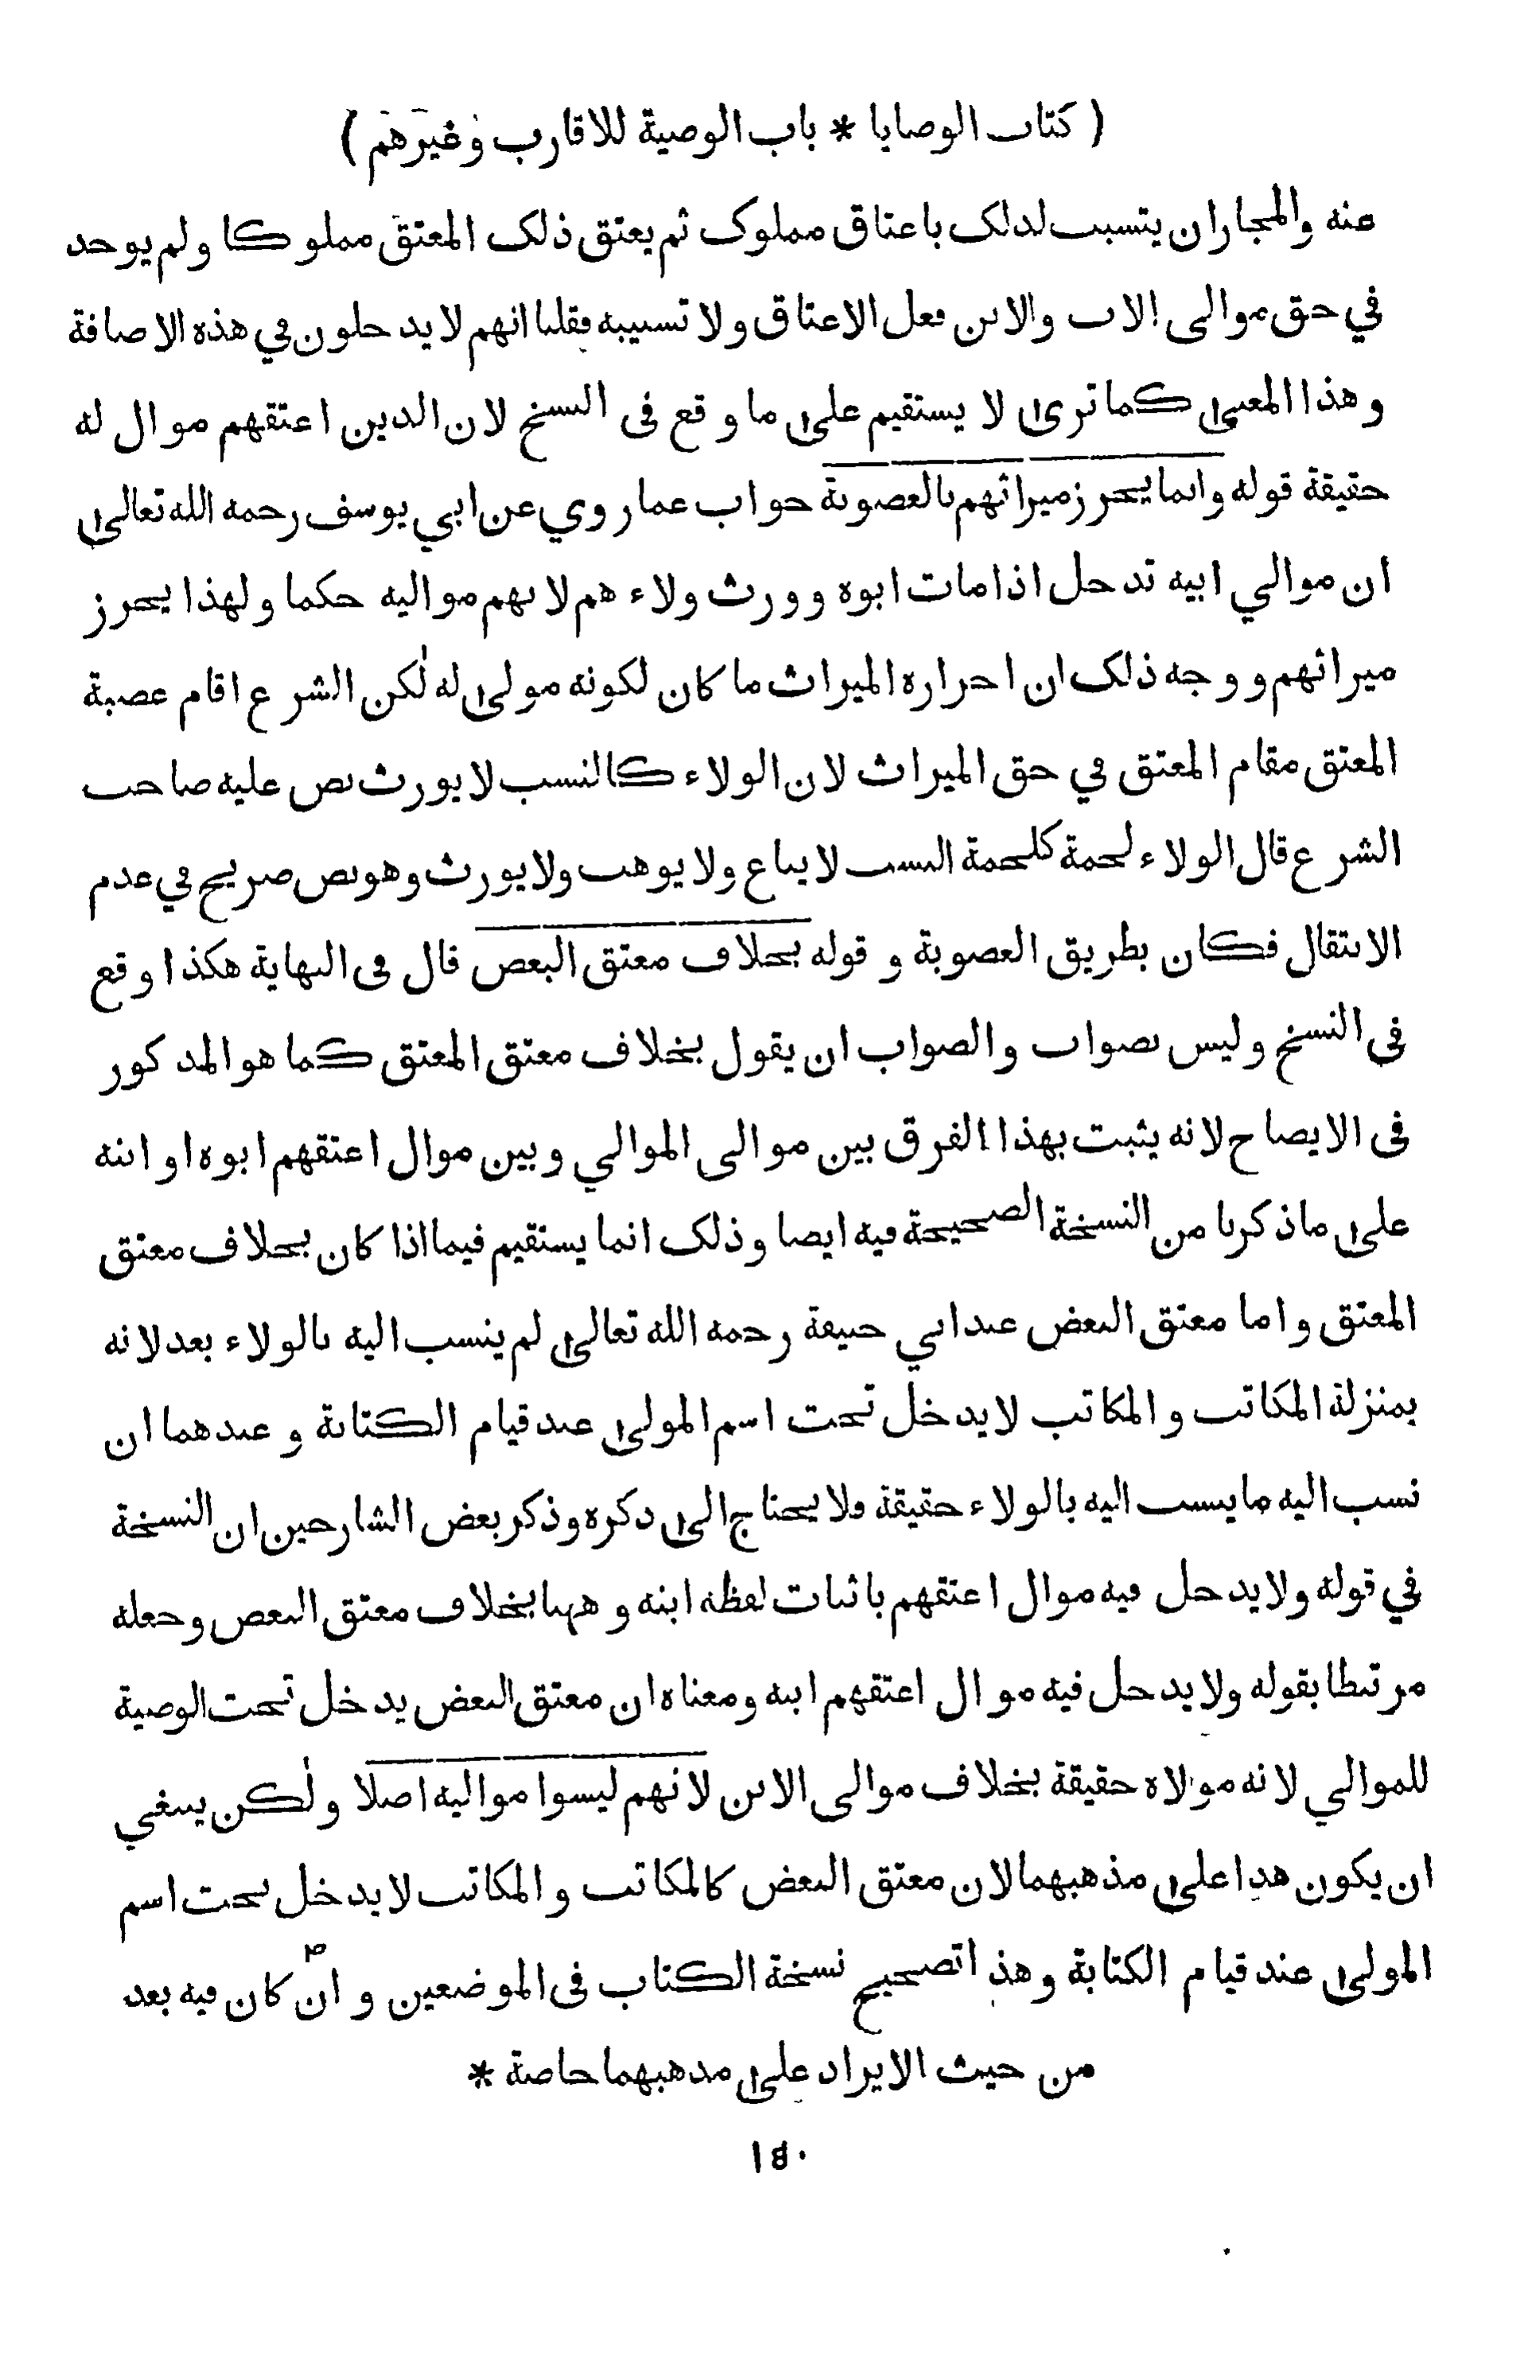 ( كتاب الوصايا * باب الوصية للاقارب وغيرهم )
عنه والمجاز ان يتسبب لذلك باعتاق مملوك ثم يعتق ذلك المعتق مملوكا ولم يوجد
في حق موالى الاب والابن فعل الاعتاق ولا تسبيبه فقلنا انهم لا يدخلون في هذه الاضافة
وهذا المعنى كما ترى لا يستقيم على ما وقع فى النسخ لان الذين اعتقهم موال له
حقيقة قوله وانما يحرز ميراثهم بالعصوبة جواب عما روي عن ابي يوسف رحمه الله تعالى
ان موالي ابيه تدخل اذا مات ابوه وورث ولاء هم لانهم مواليه حكما ولهذا يحرز
ميراثهم ووجه ذلك ان احرازه الميراث ما كان لكونه مولى له لكن الشرع اقام عصبة
المعتق مقام المعتق في حق الميراث لان الولاء كالنسب لا يورث نص عليه صاحب
الشرع قال الولاء لحمة كلحمة النسب لا يباع ولا يوهب ولا يورث وهو نص صريح في عدم
الانتقال فكان بطريق العصوبة و قوله بخلاف معتق البعض قال فى النهاية هكذا وقع
فى النسخ وليس بصواب والصواب ان يقول بخلاف معتق المعتق كما هو المذكور
فى الايضاح لانه يثبت بهذا الفرق بين موالى الموالي وبين موال اعتقهم ابوه او ابنه
على ما ذكرنا من النسخة الصحيحة فيه ايضا وذلك انما يستقيم فيما اذا كان بخلاف معتق
المعتق واما معتق البعض عند ابي حنيفة رحمه الله تعالى لم ينسب اليه بالولاء بعد لانه
بمنزلة المكاتب والمكاتب لا يدخل تحت اسم المولى عند قيام الكتابة و عندهما ان
نسب اليه ما ينسب اليه بالولاء حقيقة فلا يحتاج الى ذكره وذكر بعض الشارحين ان النسخة
في قوله ولا يدخل فيه موال اعتقهم باثبات لفظه ابنه و ههنا بخلاف معتق البعض وجعله
مرتبطا بقوله ولا يدخل فيه موال اعتقهم ابنه ومعناه ان معتق البعض يدخل تحت الوصية
للموالي لانه مولاه حقيقة بخلاف موالى الابن لانهم ليسوا مواليه اصلا ولكن ينبغي
ان يكون هذا على مذهبهما لان معتق البعض كالمكاتب والمكاتب لا يدخل تحت اسم
المولى عند قيام الكتابة وهذا تصحيح نسخة الكتاب فى الموضعين و ان كان فيه بعد
من حيث الايراد على مذهبهما خاصة *
١٥٠